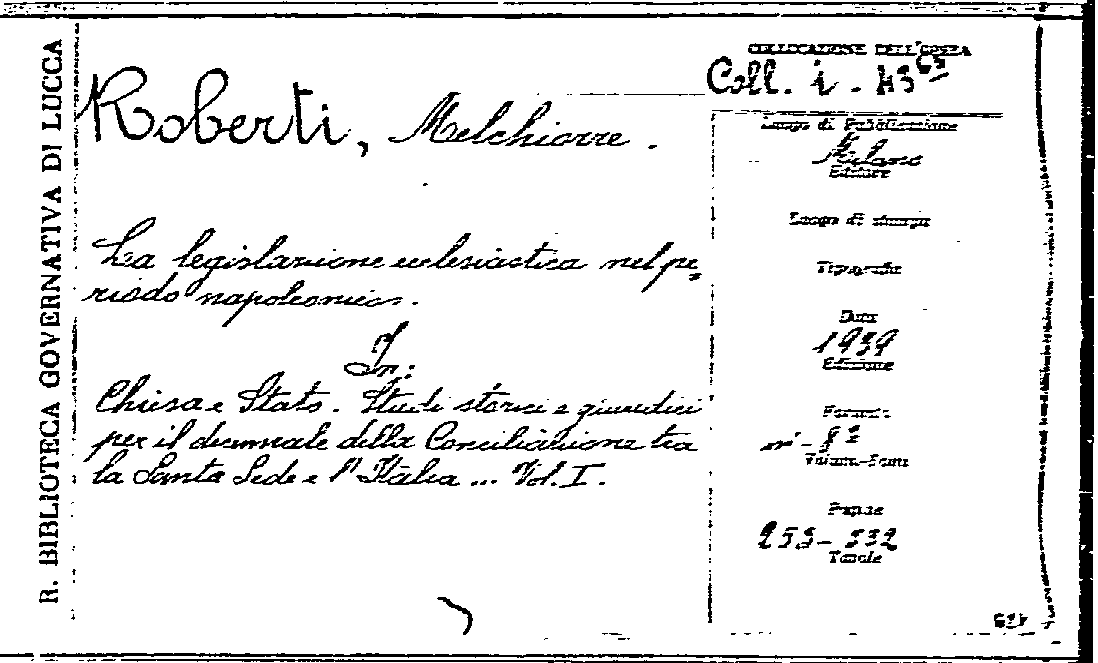 R. BIBLIOTECA GOVERNATIVA DI LUCCA
COLLOCAZIONE DELL'OPERA
Coll. i. - 43
Roberti, Melchiorre.
Luogo di Pubblicazione
Milano
Editore
Luogo di stampa
La legislazione ecclesiastica nel pe-
riodo napoleonico.
Tipografia
Data
1939
Edizione
In:
Chiesa e Stato. Studi storici e giuridici
per il decennale della Conciliazione tra
la Santa Sede e l'Italia ... Vol. I.
Formato
in - 8º
Volume-Tomo
Pagine
253 - 332
Tavole